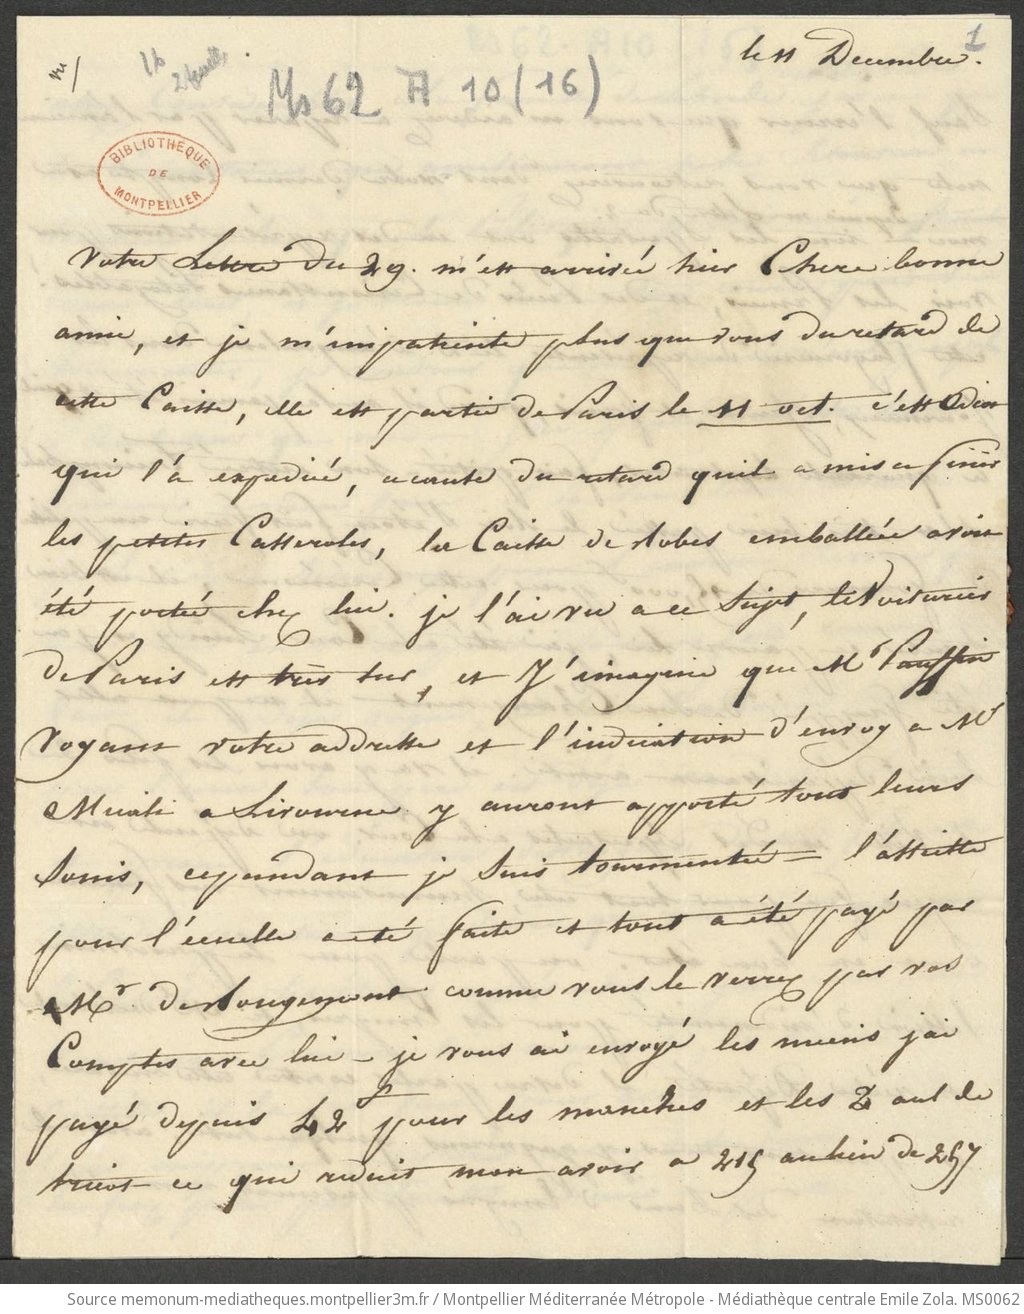 1
le 11 Decembre.
Ms 62 A 10 (16)
BIBLIOTHEQUE
DE
MONTPELLIER
Votre Lettre du 29. m'est arrivée hier Chere bonne
amie, et je m'impatiente plus que vous du retard de
cette Caisse, elle est partie de Paris le 11 oct. c'est Odiot
qui l'a expediée, a cause du retard quil a mis a finir
les petites Casseroles, la Caisse de Robes emballée avoit
été portée chez lui. je l'ai vu a ce Sujet, le Voiturier
de Paris est très sur, et J'imagine que Mr Pauffin
voyant votre addresse et l'indication d'envoy a Mr
Micali a Livourne y auront apporté tout leurs
Soins, cependant je Suis tourmentée = l'assiette
pour l'écuelle a été faite et tout a été payé par
Mr de Rougemont comme vous le verrez par vos
Comptes avec lui – je vous ai envoyé les miens jai
payé depuis 42 f pour les manches et les 2 aul de
tricot ce qui reduit mon avoir a 215 au lieu de 257
Source memonum-mediatheques.montpellier3m.fr / Montpellier Méditerranée Métropole - Médiathèque centrale Emile Zola. MS0062